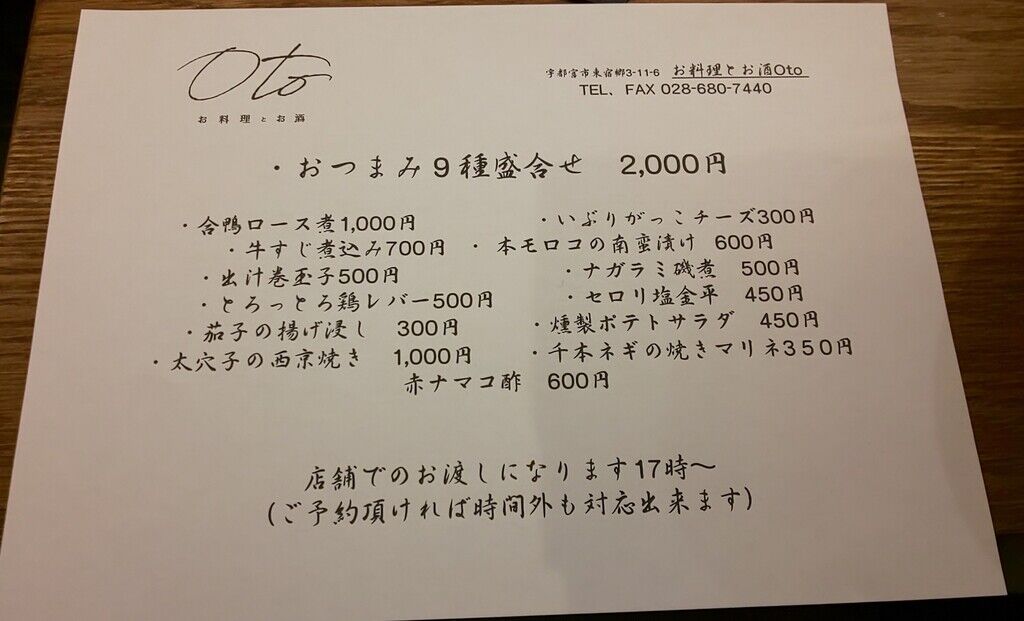 Oto
お料理とお酒
宇都宮市東宿郷3-11-6 お料理とお酒Oto
TEL、FAX 028-680-7440
・おつまみ9種盛合せ 2,000円
・合鴨ロース煮1,000円
・いぶりがっこチーズ300円
・牛すじ煮込み700円
・本モロコの南蛮漬け 600円
・出汁巻玉子500円
・ナガラミ磯煮 500円
・とろっとろ鶏レバー500円
・セロリ塩金平 450円
・茄子の揚げ浸し 300円
・燻製ポテトサラダ 450円
・太穴子の西京焼き 1,000円
・千本ネギの焼きマリネ350円
赤ナマコ酢 600円
店舗でのお渡しになります17時～
(ご予約頂ければ時間外も対応出来ます)